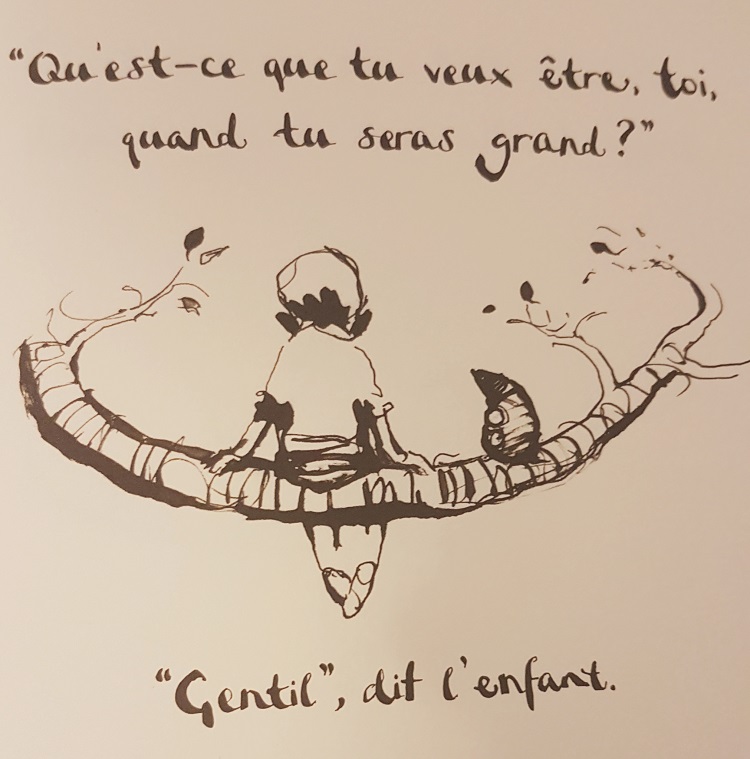 “Qu'est-ce que tu veux être, toi,
quand tu seras grand?”
“Gentil”, dit l'enfant.